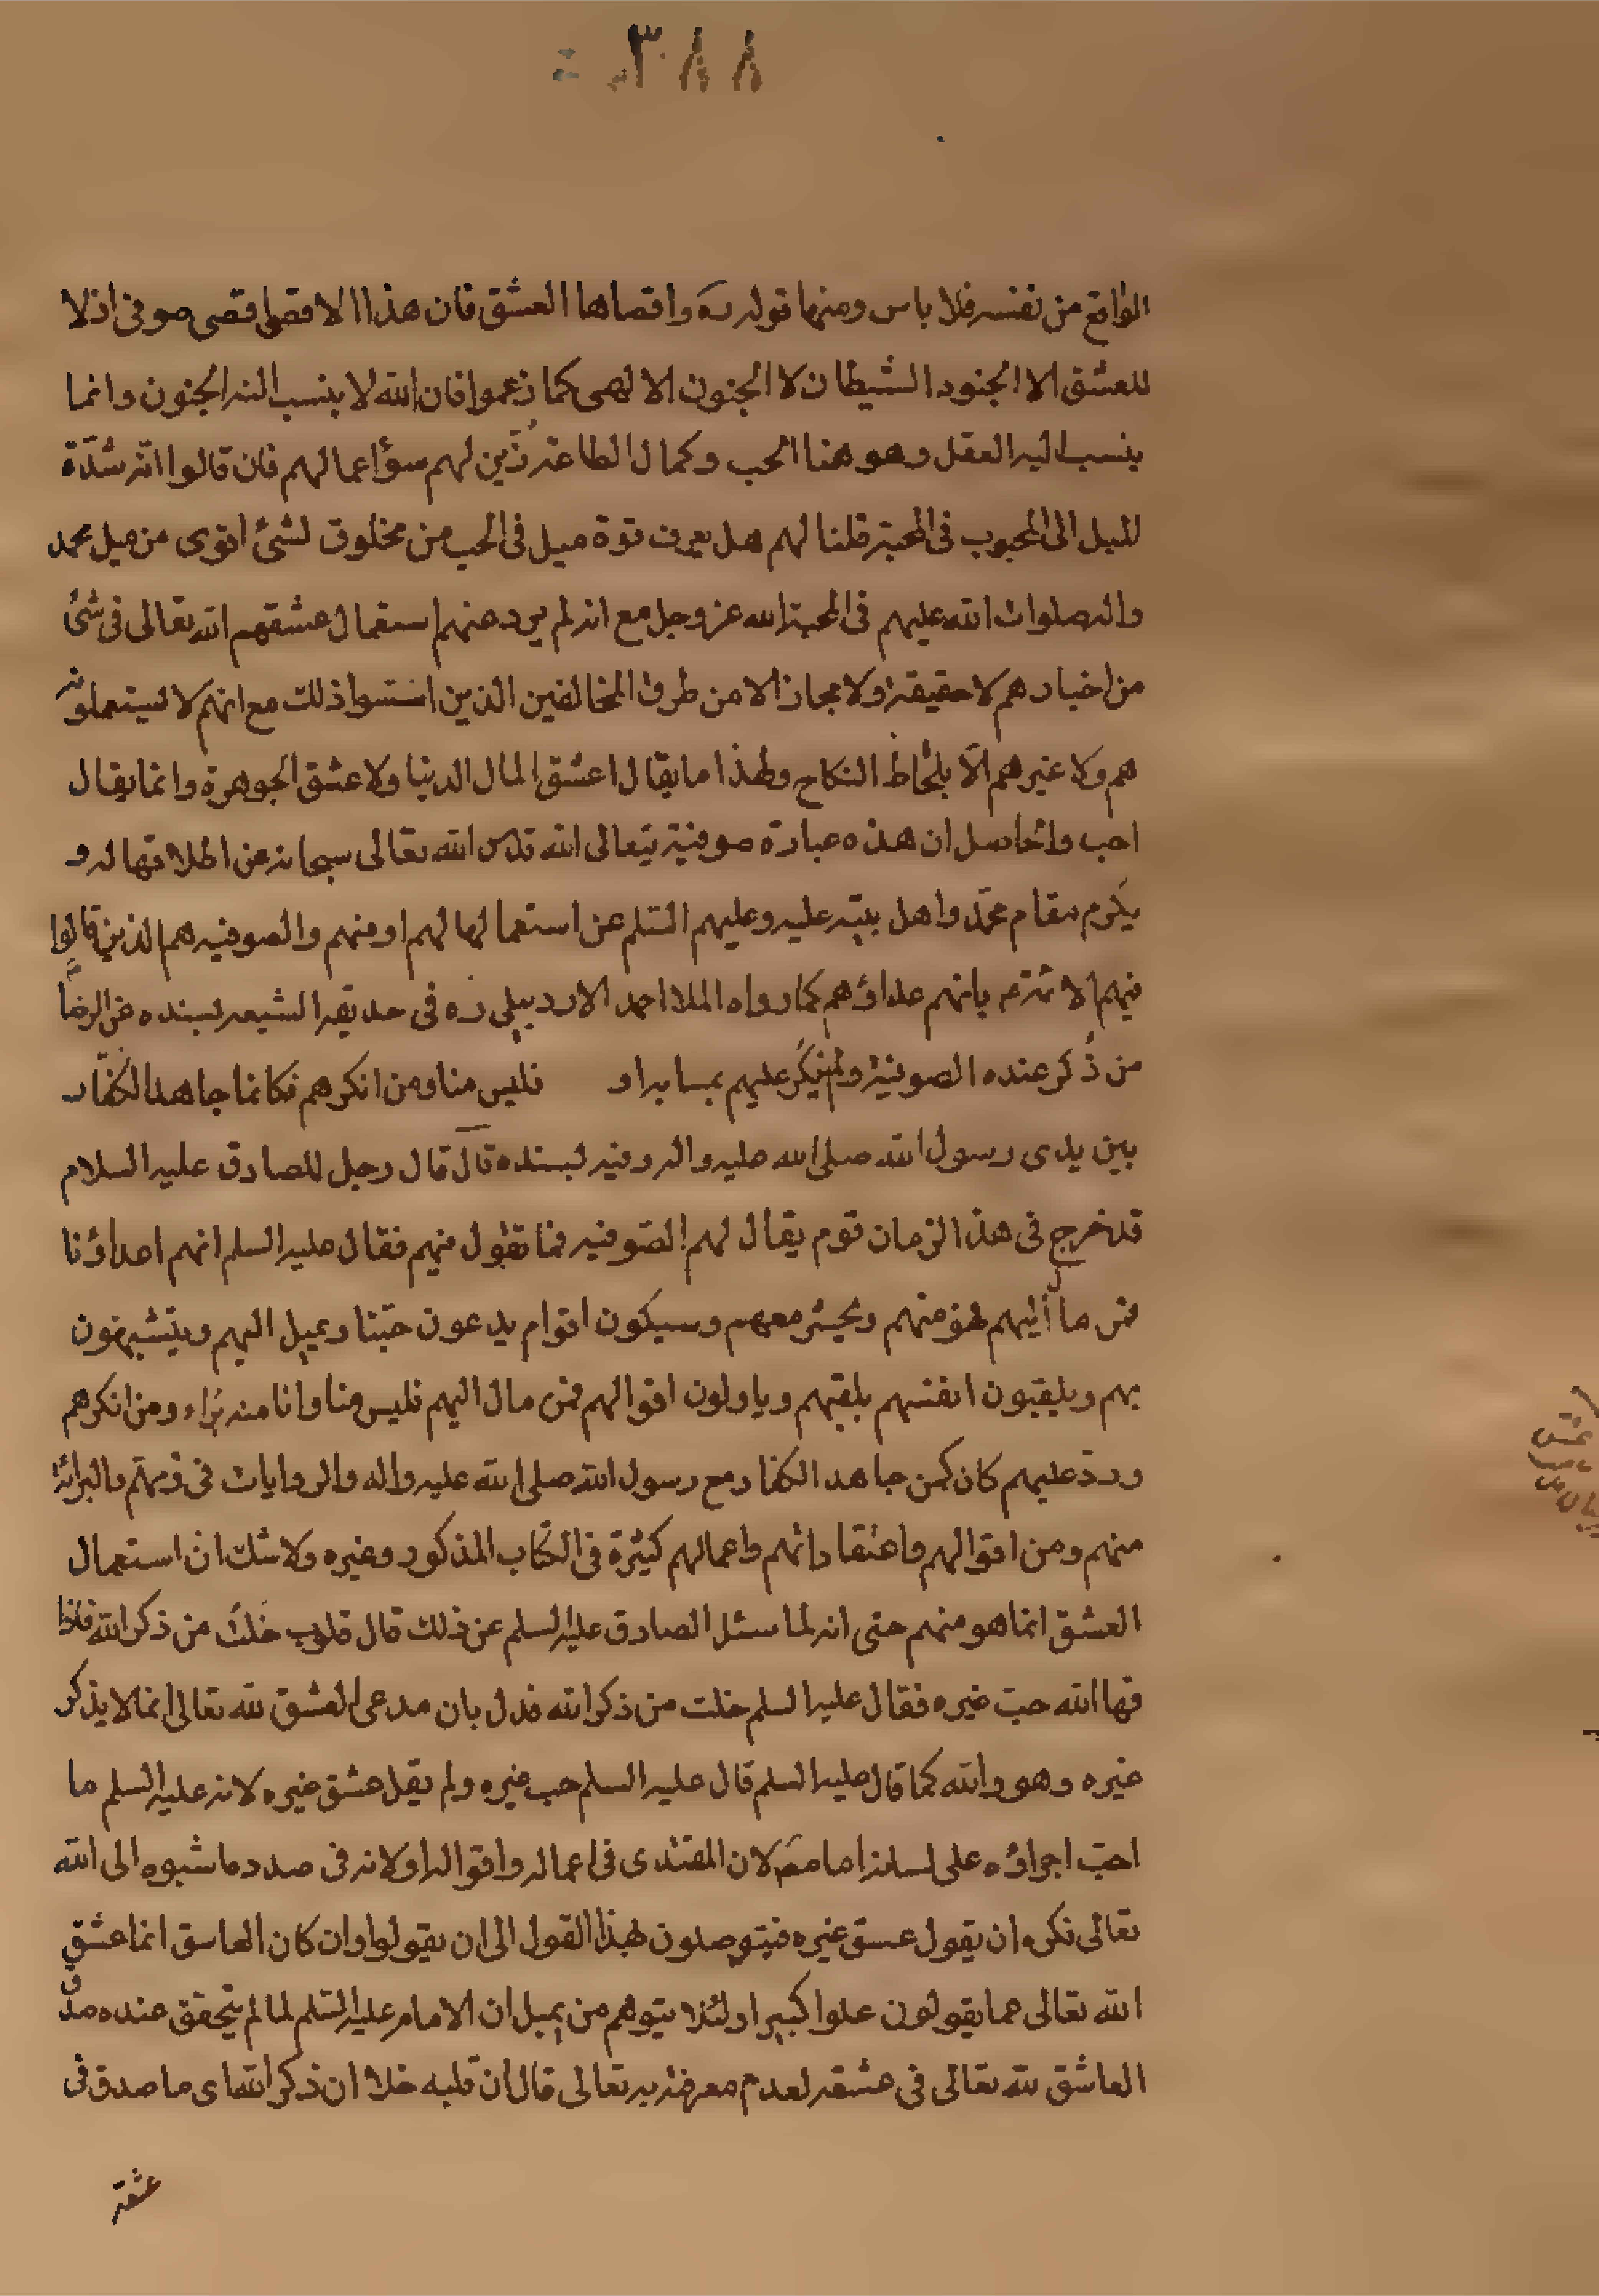 ٣٨٨
الواقع من نفسه فلا باس ومنها قوله ره واقصاها العشق فان هذا الاقصى اقصى صوفى اذ لا
للعشق الا الجنود الشيطان لا الجنون الالهى كما زعموا فان الله لا ينسب اليه الجنون وانما
ينسب اليه العقل وهو هنا الحب وكمال الطاعة زُيّن لهم سوؤ اعمالهم فان قالوا انه شدّة
الميل الى المحبوب فى المحبة قلنا لهم هل يعرف قوة ميل فى الحب من مخلوق لشئ اقوى من ميل محمد
واله صلوات الله عليهم فى المحبة الله عز وجل مع انه لم يرد عنهم استعمال عشقهم الله تعالى فى شئ
من اخبارهم لا حقيقة ولا مجازا الا من طرق المخالفين الذين اسسوا ذلك مع انهم لا يستعملونه
هم ولا غيرهم الّا بلحاظ النكاح ولهذا ما يقال اعشق المال الدنيا ولا عشق الجوهرة وانما يقال
احب والحاصل ان هذه عبارة صوفية يتعالى الله قدس الله تعالى سبحانه عن اطلاقها له و
يكرم مقام محمّد واهل بيته عليه وعليهم السّلم عن استعمالها لهم او منهم والصوفيه هم الذين قالوا
فيهم الائمة ع بانهم عداؤهم كما رواه الملا احمد الاردبيلى ره فى حديقة الشيعه بسنده عن الرضا ع
من ذُكر عنده الصوفية ولم يُنكر عليهم بلسانه او فليس منا ومن انكرهم فكانما جاهد الكفّار
بين يدى رسول الله صلى الله عليه واله وفيه بسنده قال قال رجل للصادق عليه السلام
قد خرج فى هذا الزمان قوم يقال لهم الصّوفيه فما تقول فيهم فقال عليه السلم انهم اعداؤنا
فمن مال اليهم فهو منهم ويحشر معهم وسيكون اقوام يدعون حبّنا ويميل اليهم ويتشبهون
بهم ويلقبون انفسهم بلقبهم وياولون اقوالهم فمن مال اليهم فليس منا وانا منه بُراء ومن انكرهم
وردّ عليهم كان كمن جاهد الكفار مع رسول الله صلى الله عليه واله والروايات فى ذمّهم والبرائة
منهم ومن اقوالهم واعتقاداتهم واعمالهم كثيرة فى الكتاب المذكور وغيره ولا شك ان استعمال
العشق انما هو منهم حتى انه لما سئل الصادق عليه السلم عن ذلك قال قلوب خلت من ذكر الله فاذا
قها الله حبّ غيره فقال عليه السلم خلت من ذكر الله فدل بان مدعى العشق لله تعالى انما لا يذكر
غيره وهو والله كما قال عليه السلم قال عليه السلم حب غيره ولم يقل عشق غيره لانه عليه السلم ما
احبّ اجراؤه على لسانه اما لان المقتدى فى اعماله واقواله او لانه فى صدد ما نسبوه الى الله
تعالى فكره ان يقول عسق غيره فيتوصلون بهذا القول الى ان يقولوا وان كان العاسق انما عشق
الله تعالى عما يقولون علوا كبيرا ولئلا يتوهم من يميل ان الامام عليه السّلم لما لم يتحقق عنده صدق
العاشق لله تعالى فى عشقه لعدم معرفته به تعالى قال ان قلبه خلا ان ذكر الله اى ما صدق فى
عشقه